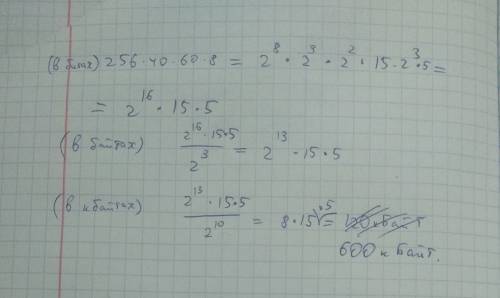 (в битах) 256·40·60·8 = 2⁸ · 2³ · 2² · 15·2³·5 =
= 2¹⁶ · 15 · 5
(в байтах) 2¹⁶·15·5 / 2³ = 2¹³ · 15 · 5
(в кбайтах) 2¹³ · 15·5 / 2¹⁰ = 8·15·5 = 120 кбайт
600 кбайт.